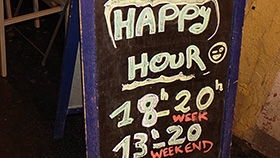 HAPPY
HOUR
18h-20h
WEEK
13h-20
WEEKEND